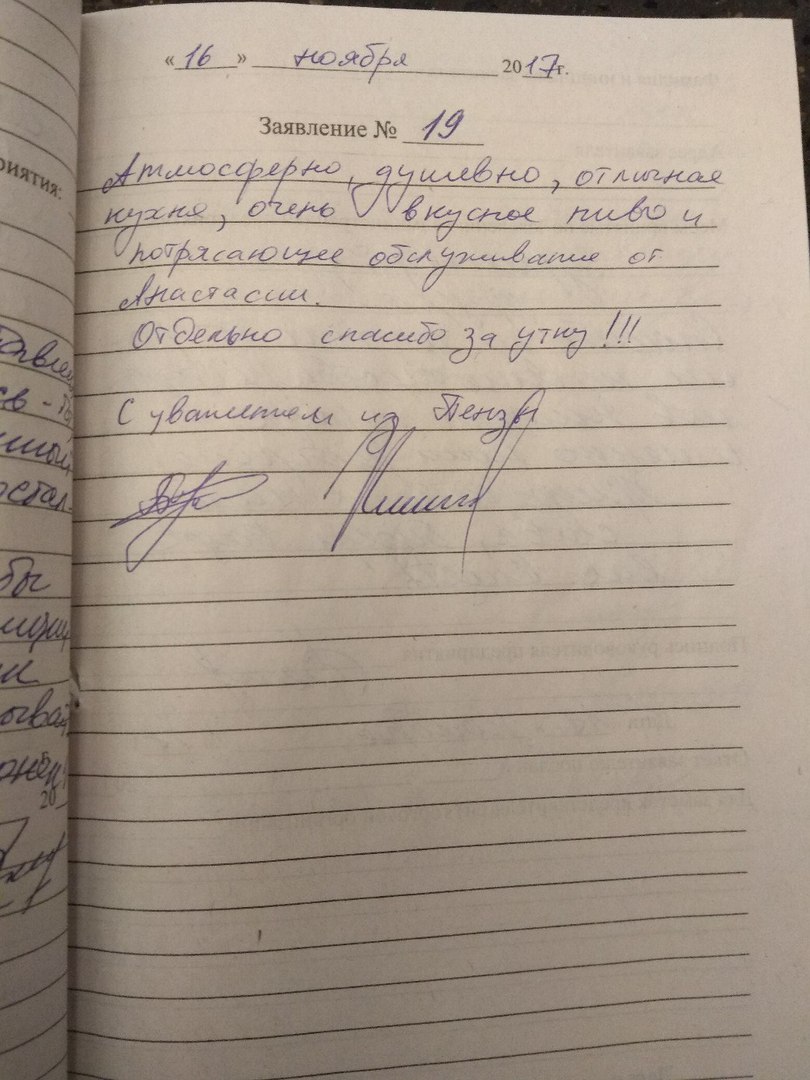 «16» ноября 2017г.
Заявление № 19
Атмосферно, душевно, отличная
кухня, очень вкусное пиво и
потрясающее обслуживание от
Анастасии.
Отдельно спасибо за утку!!!
С уважением из Пензы